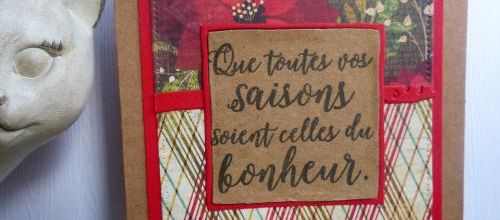 Que toutes vos
saisons
soient celles du
bonheur.